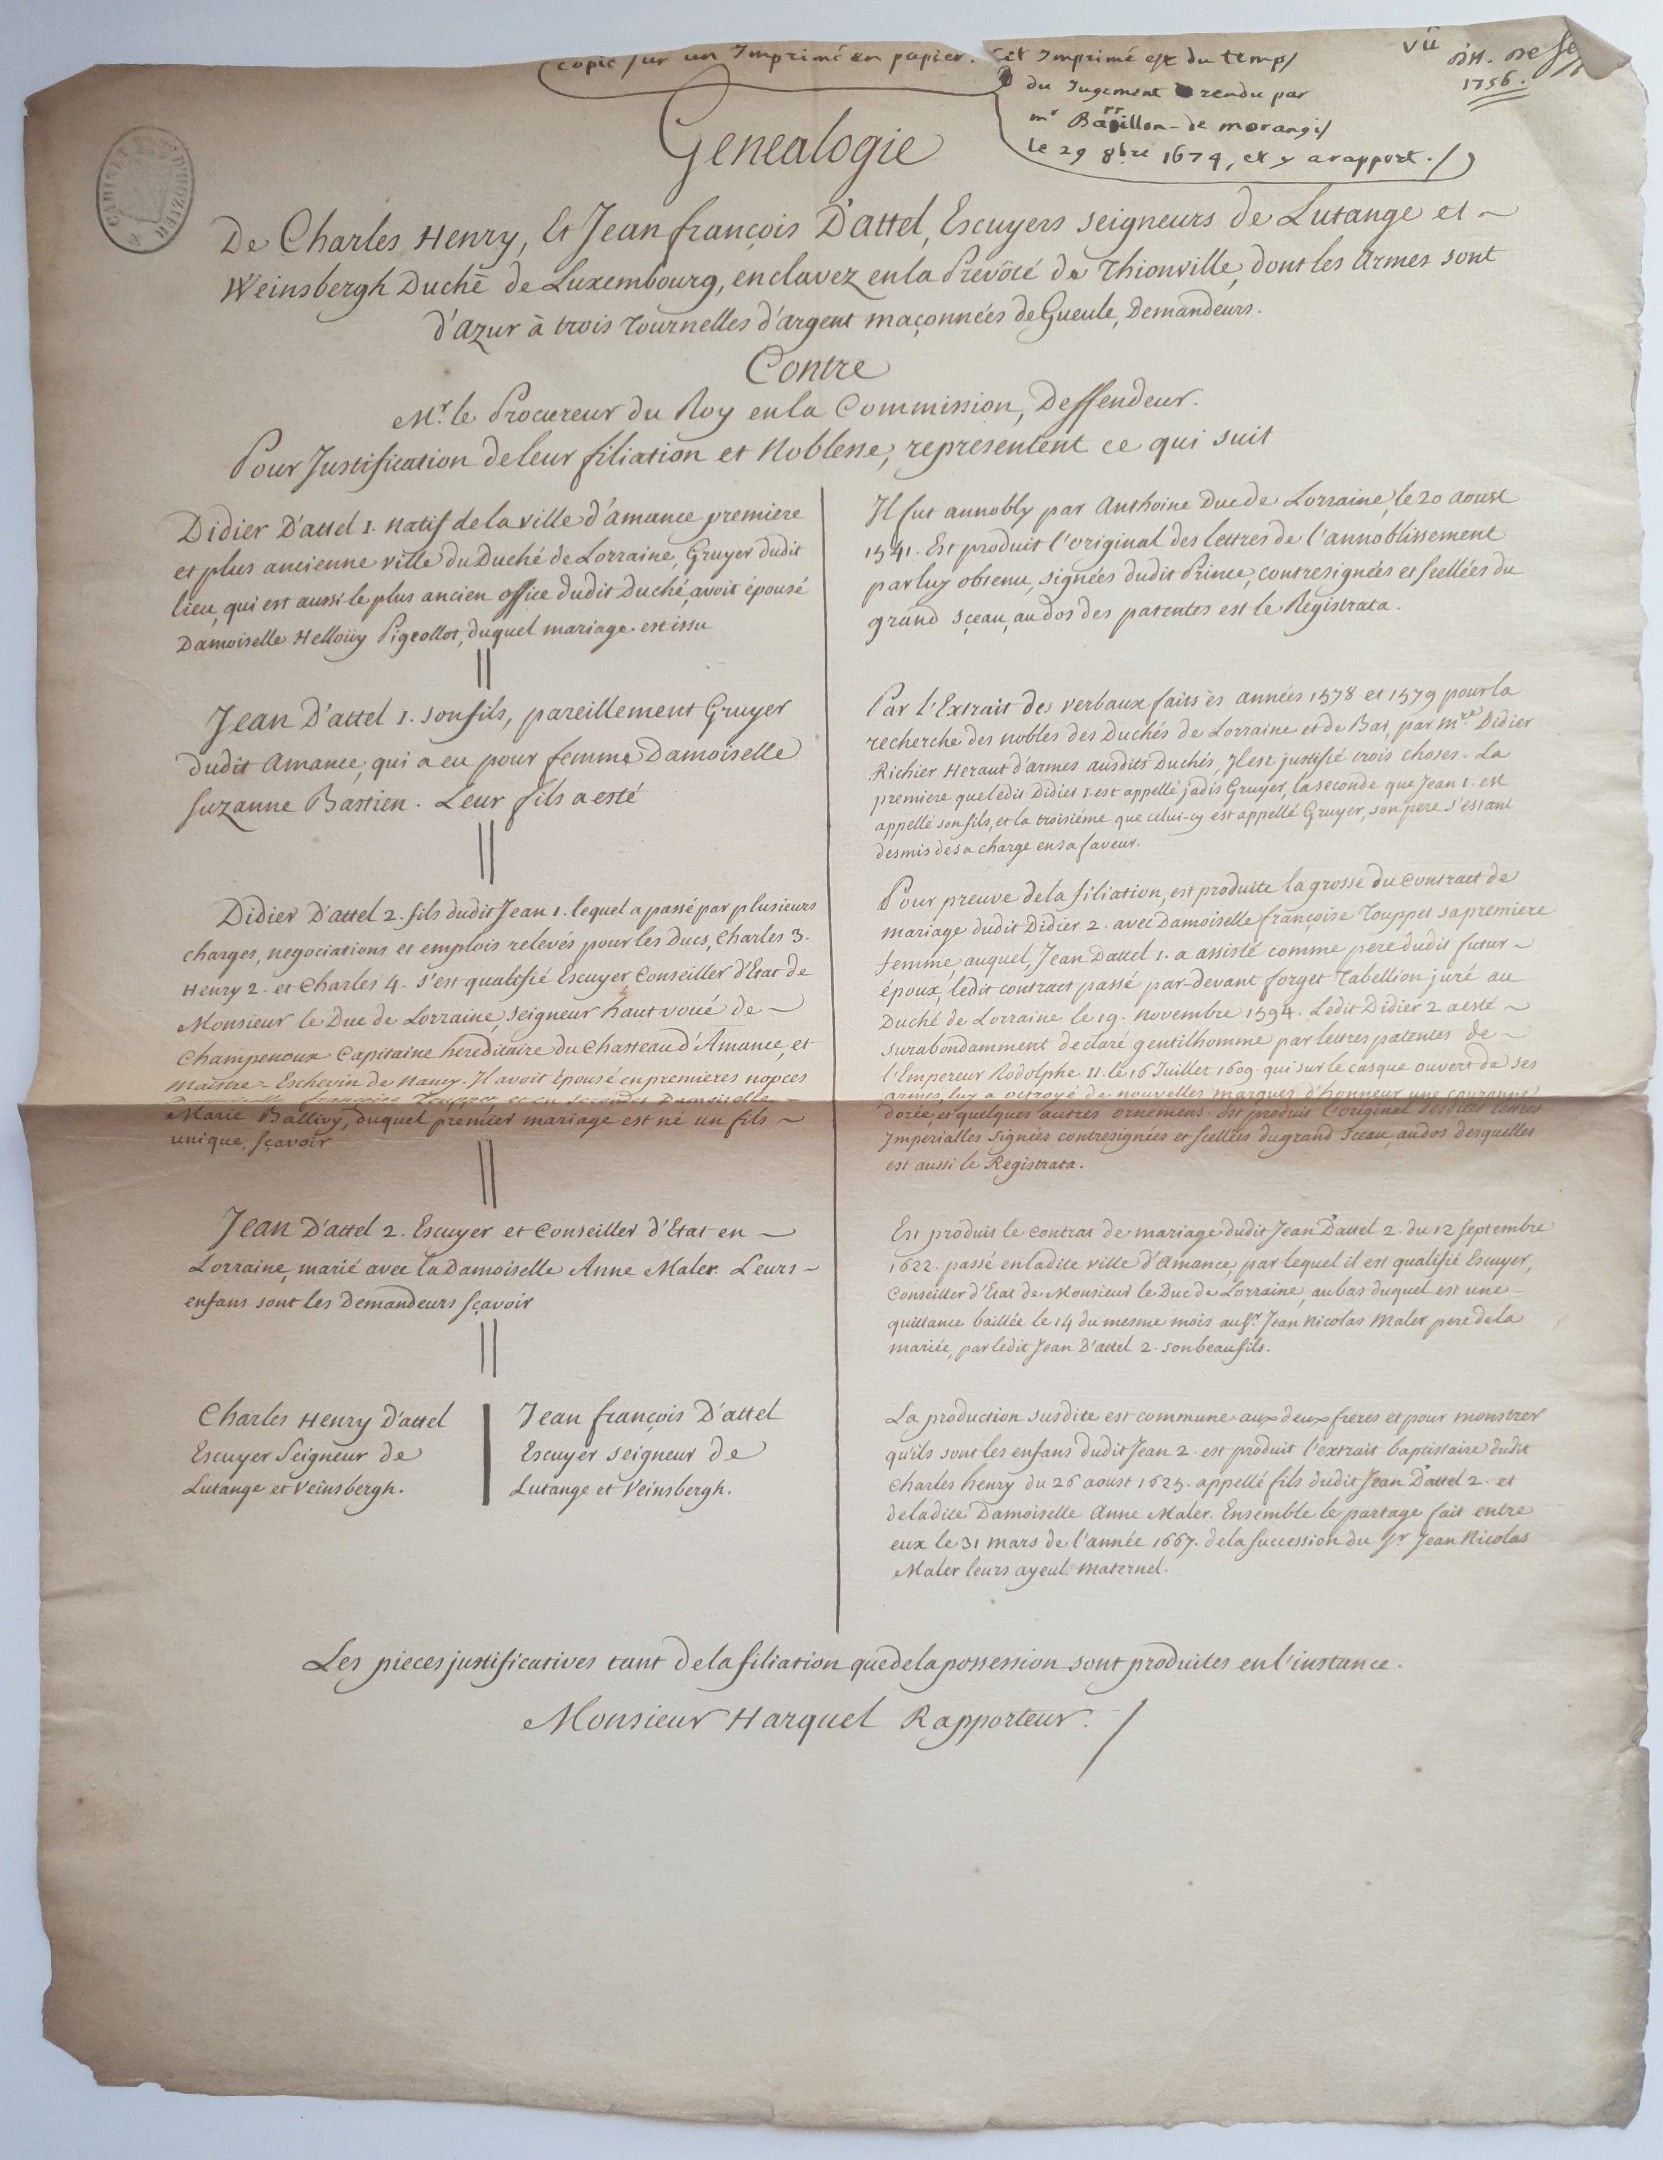 (copie sur un Imprimé en papier. Cet Imprimé est du temps
du Jugement rendu par
mr Barrillon de morangis
le 29 8bre 1674, et y a rapport./)
Vû
1756.
CABINET D'HOZIER
Genealogie
De Charles Henry, Et Jean françois D'attel, Escuyers seigneurs de Lutange et ~
Weinsbergh Duché de Luxembourg, enclavez en la Prevôté de Thionville, dont les Armes sont
d'azur à trois Tournelles d'argent maçonnées de Gueule, Demandeurs.
Contre
Mr. le Procureur du Roy en la Commission, Deffendeur.
Pour Justification de leur filiation et Noblesse, representent ce qui suit
Didier D'attel 1. natif de la ville d'amance premiere
et plus ancienne ville du Duché de Lorraine, Gruyer dudit
lieu, qui est aussi le plus ancien office dudit Duché, avoit épousé
Damoiselle Helloüy Pigeollot, duquel mariage est issu
Il fut annobly par Anthoine Duc de Lorraine, le 20 aoust
1541. Est produit l'original des lettres de l'annoblissement
par luy obtenu, signées dudit Prince, contresignées et scellées du
grand sçeau, au dos des patentes est le Registrata.
Jean D'attel 1. son fils, pareillement Gruyer
dudit Amance, qui a eu pour femme Damoiselle
Suzanne Bastien. Leur fils a esté
Par l'Extrait des verbaux faits ès années 1578 et 1579 pour la
recherche des nobles des Duchés de Lorraine et de Bar, par mre. Didier
Richier Heraut d'armes ausdits Duchés, Il est justifié trois choses. La
premiere que ledit Didier 1. est appellé jadis Gruyer, la seconde que Jean 1. est
appellé son fils, et la troisiéme que celui-cy est appellé Gruyer, son pere s'estant
desmis de sa charge en sa faveur.
Didier D'attel 2. fils dudit Jean 1. lequel a passé par plusieurs
charges, negociations et emplois relevés pour les Ducs, Charles 3.
Henry 2. et Charles 4. s'est qualifié Escuyer Conseiller d'Etat de
Monsieur le Duc de Lorraine, seigneur haut voué de ~
Champenoux Capitaine hereditaire du Chasteau d'Amance, et
Maistre-Eschevin de Nancy. Il avoit épousé en premieres nopces
Damoiselle françoise Touppet et en secondes Damoiselle ~
Marie Ballivy, duquel premier mariage est né un fils ~
unique, sçavoir
Pour preuve de la filiation, est produite la grosse du contract de
mariage dudit Didier 2. avec Damoiselle françoise Touppet sa premiere
femme, auquel, Jean Dattel 1. a assisté comme pere dudit futur ~
époux, ledit contract passé par-devant forget Tabellion juré au
Duché de Lorraine le 19. Novembre 1594. Ledit Didier 2 a esté ~
surabondamment declaré gentilhomme par lettres patentes de ~
l'Empereur Rodolphe II. le 16 Juillet 1609. qui sur le casque ouvert de ses
armes, luy a octroyé de nouvelles marques d'honneur une couronne
dorée, et quelques autres ornemens. Est produit l'original desdites lettres
Imperialles signées contresignées et scellées du grand sceau, au dos desquelles
est aussi le Registrata.
Jean D'attel 2. Escuyer et Conseiller d'Etat en ~
Lorraine, marié avec la Damoiselle Anne Maler. Leurs ~
enfans sont les Demandeurs sçavoir
Est produit le contrat de mariage dudit Jean D'attel 2. du 12 septembre
1622. passé en ladite ville d'Amance, par lequel il est qualifié Escuyer,
Conseiller d'Etat de Monsieur le Duc de Lorraine, au bas duquel est une
quittance baillée le 14 du mesme mois au Sr. Jean Nicolas Maler pere de la
mariée, par ledit Jean D'attel 2. son beau fils.
Charles Henry D'attel
Escuyer Seigneur de
Lutange et Veinsbergh.
Jean françois D'attel
Escuyer seigneur de
Lutange et Veinsbergh.
La production susdite est commune aux deux freres et pour monstrer
qu'ils sont les enfans dudit Jean 2. est produit l'extrait baptistaire dudit
Charles henry du 26 aoust 1625. appellé fils dudit Jean D'attel 2. et
de ladite Damoiselle Anne Maler. Ensemble le partage fait entre
eux le 31 mars de l'année 1667. de la succession du Sr. Jean Nicolas
Maler leurs ayeul maternel.
Les pieces justificatives tant de la filiation que de la possession sont produites en l'instance.
Monsieur Harquel Rapporteur./